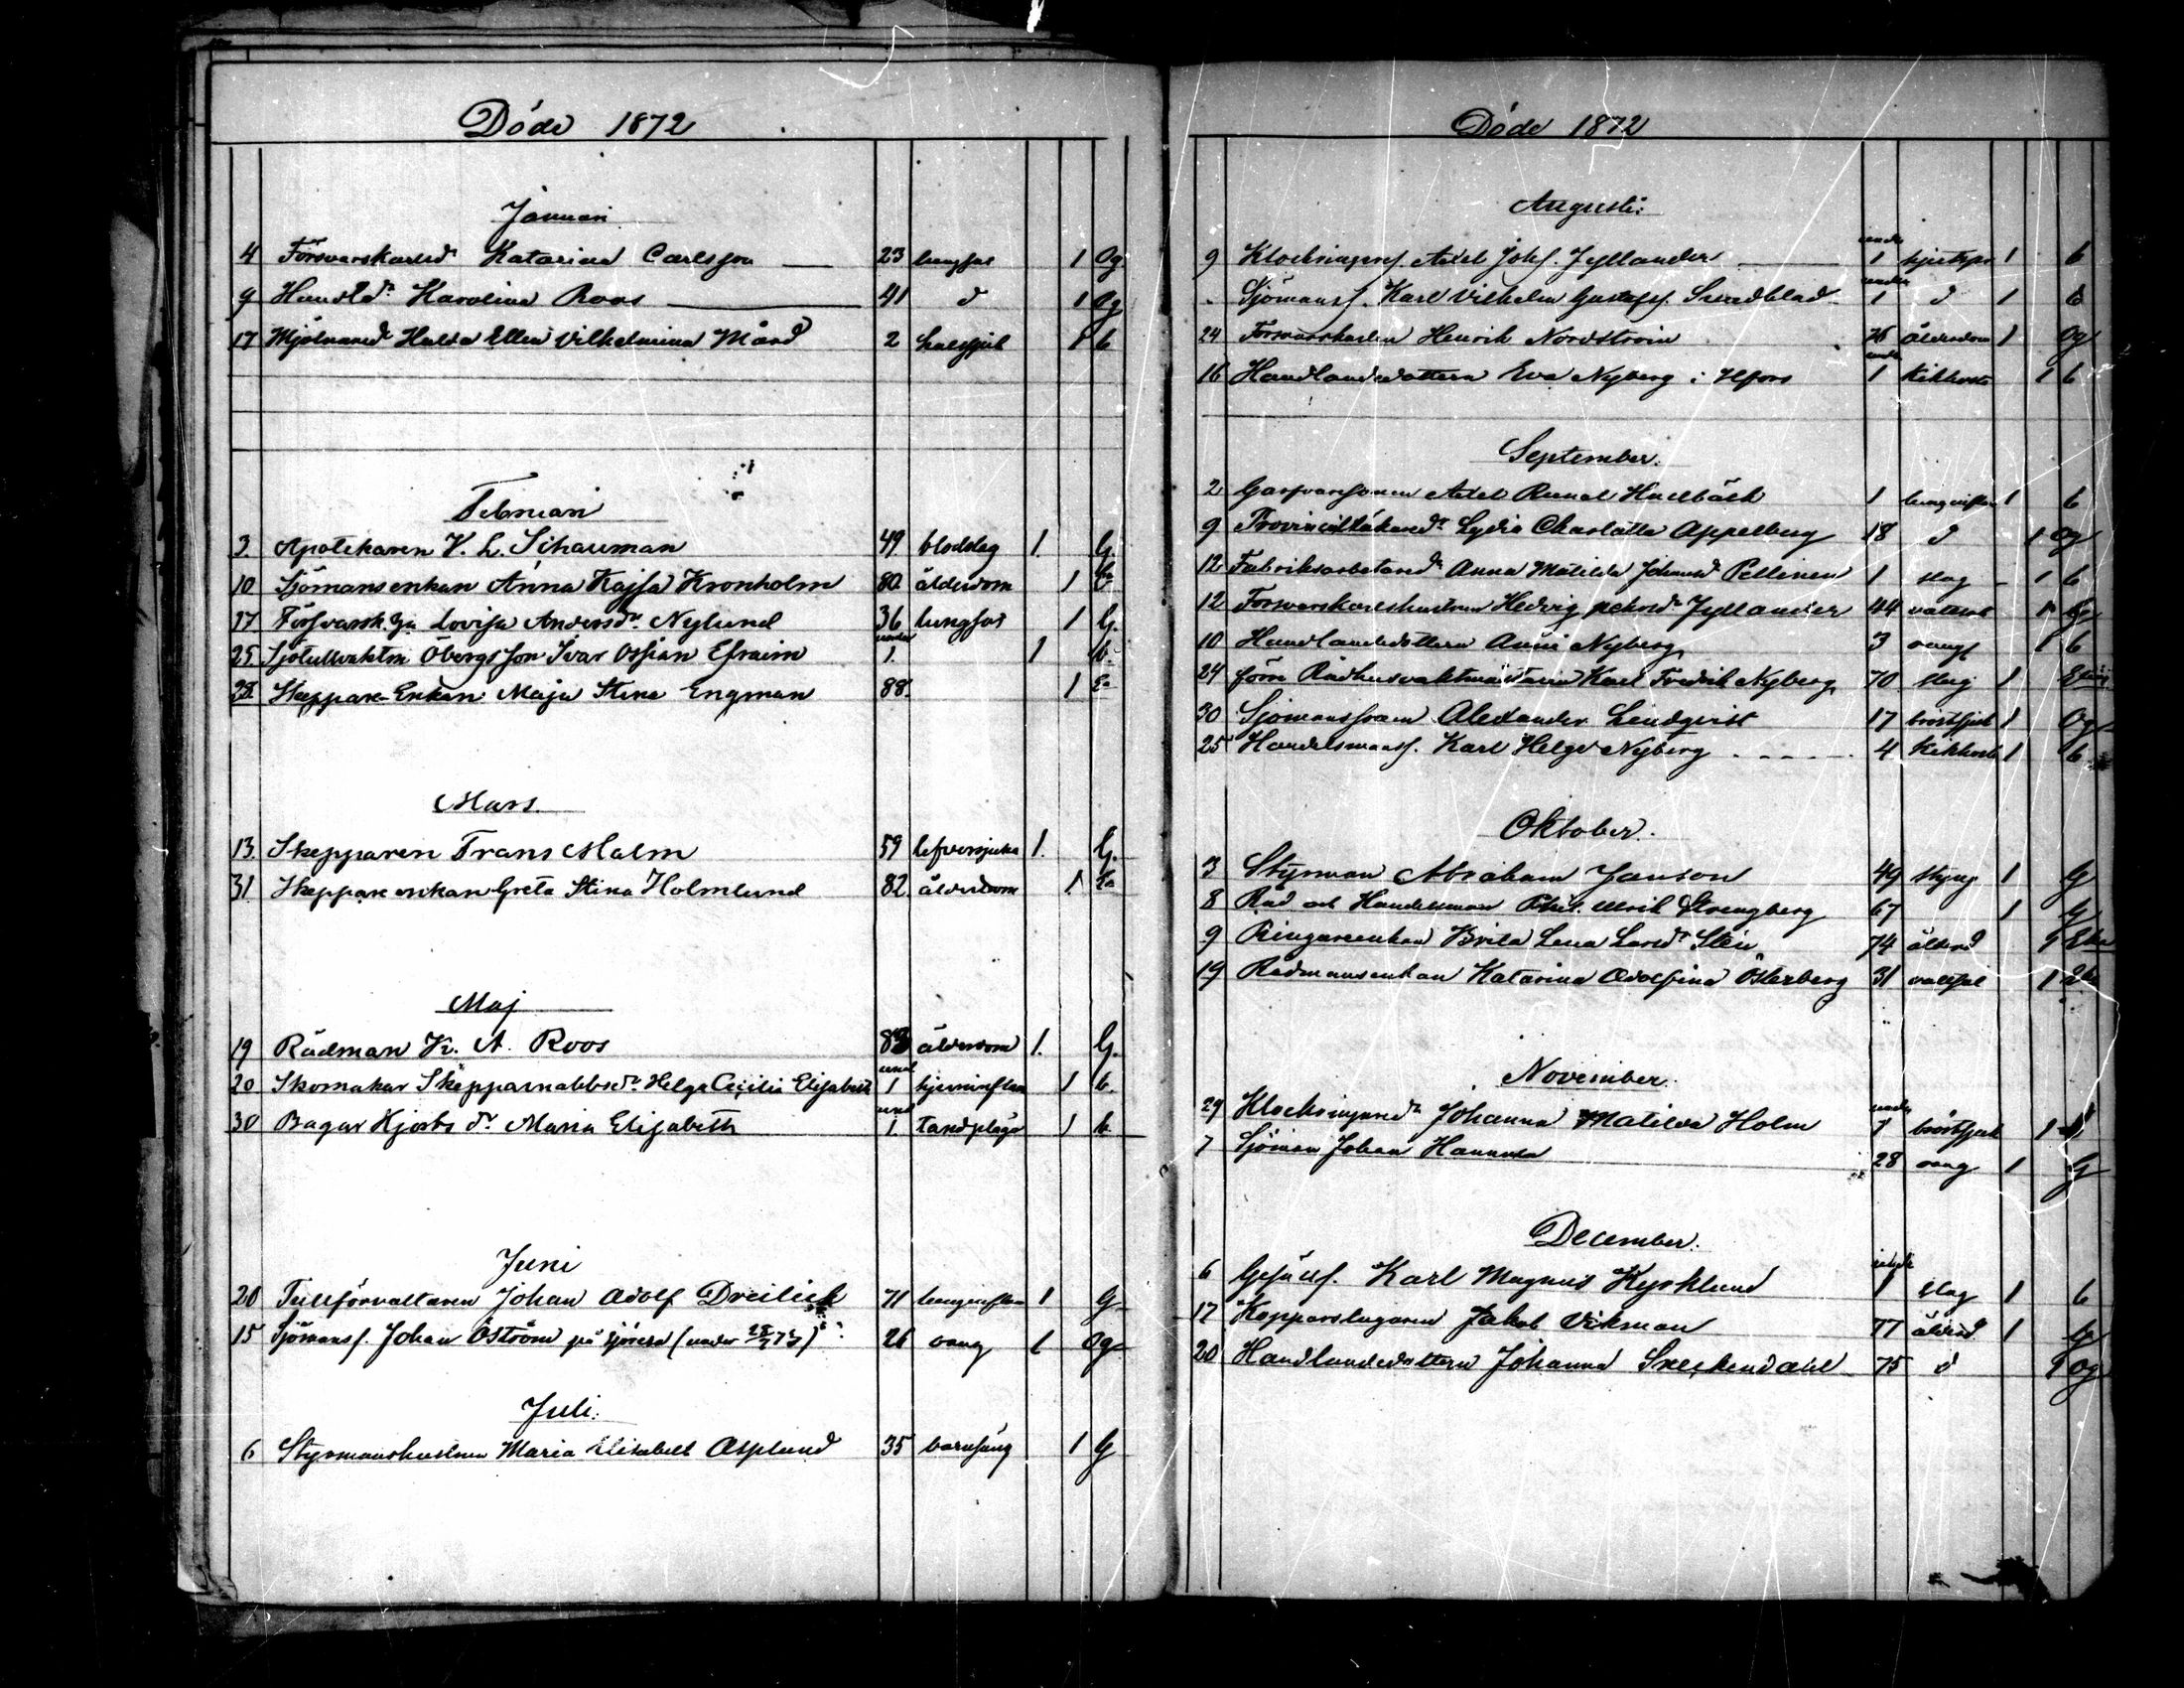 Döde 1872
Januari
4 Försvarskarlsdr Katarina Carlsson 23 lungsot 1 Og.
9 Handl.dr Karolina Roos 41 d 1 Og
17 Mjölnared Hulda Ellen Vilhelmina Mård 2 halssjuk 1 b
Februari
3 Apotekaren K. L. Schauman 49 blodslag 1. G.
10 Sjömansenkan Anna Kajsa Kronholm 80 ålderdom 1 Ea
17 Försvarsk. Lovisa Andersdr Nylund 36 lungsot 1 G.
25 Öbergs son Ivar Ossian Efraim under 1. 1 b.
28. Skeppare-Enkan Maja Stina Engman 88. 1 Ea
Mars.
13. Skepparen Frans Malm 59 lefversjuka 1. G.
31. Skeppare enkan Greta Stina Holmlund 82 ålderdom 1 Ea
Maj
19 Rådman K. A. Roos 83 ålderdom 1. G.
20 Skomakar Skepparnabbsdr Helga Cecilia Elisabeth und 1 hjerninflam 1 b.
30 Bagar dr Maria Elisabeth und 1. tandplåga 1 b
Juni
20 Tullförvaltaren Johan Adolf Dreilick 71 lunginflam 1 G
15 Sjömans s. Johan Öström på sjöresa (under 73) 26 oang 1 Og
Juli.
6 Styrmanshustrun Maria Elisabett Asplund 35 barnsäng 1 G
Döde 1872
Augusti:
9 Klockringares. Axel Johs. Jyllander under 1 1 b
- Sjömans s. Karl Vilhelm Gustafs. Sundblad under 1 d 1 b
24 Försvarskarlen Henrik Nordström 76 ålderdom 1 Og
16 Handlandedottern Eva Nyberg i Hfors under 1 Kikhosta 1 b
September.
2 Garfvaresonen Axel Runal Hullbäck 1 lunginflam 1 b
9 Provincialläkaredr Lydia Charlotta Appelberg 18 d 1 Og
12 Fabriksarbetaredr Anna Matilda Johansd Pellinen 1 slag 1 b
12 Försvarskarlshustrun Hedvig Jyllander 44 vattens 1 G
10 Handlandedottern Anni Nyberg 3 oang 1 b
24 förre Rådhusvaktmästaren Karl Fredrik Nyberg 70 slag 1
30 Sjömanssonen Alexander Lindqvist 17 bröstsjuk 1 Og
25 Handelsmans s. Karl Helge Nyberg 4 Kikhosta 1 b
Oktober.
3 Styrman Abraham Janson 49 1 G
8 Råd och Handelsman Ulrik Strengberg 67 1 G
9 Ringareenkan Brita Lena Larsdr Sten 74 ålderd 1 Eka
19 Rådmansenkan Katarina Adolfina Österberg 31 1
November.
29 Klockringaredr Johanna Matilda Holm under 1 bröstsjuk 1
7 Sjöman Johan Hannula 28 oang 1 G
December.
6 Gesälls. Karl Magnus Kyrklund under 1 slag 1 b
17 Kopparslagaren Jakob Vikman 77 ålderd 1 G
20 Handlandedottern Johanna Sneckendahl 75 d 1 Og